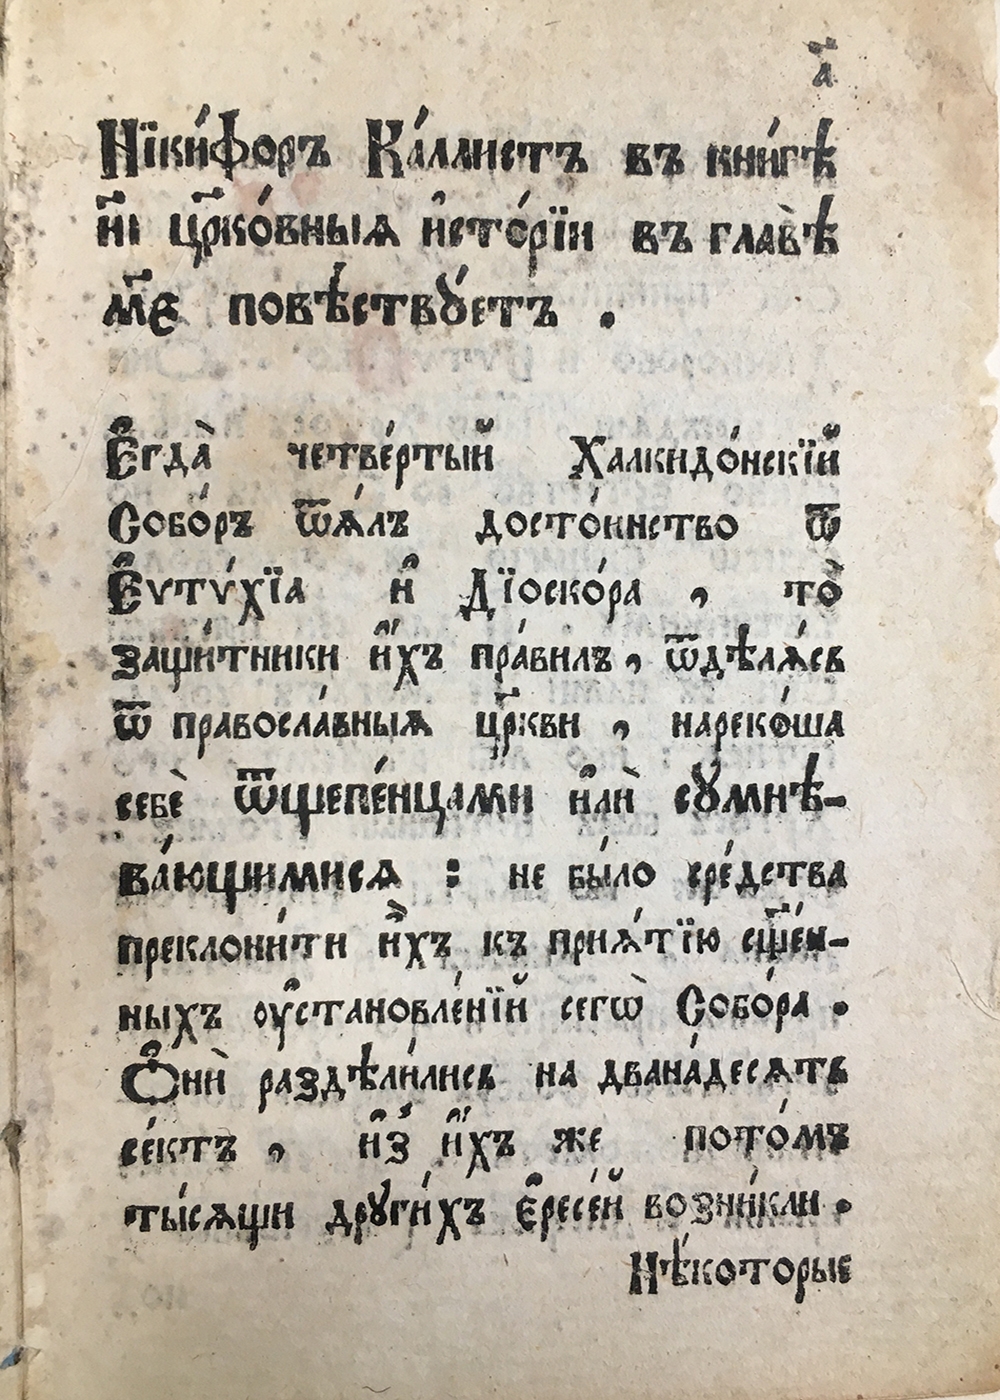 а҃
Нїки́форъ Ка́ллистъ въ кни́гѣ
и҃і цр҃ко́вныя и҆сто́рїи въ главѣ̀
м҃е повѣ́ствꙋетъ .
Е҆гда̀ четве́ртый Халкидо́нскїй
Собо́ръ ѿѧ́лъ досто́инство ѿ
Е҆ѵтѵ́хїа и҆ Дїоско́ра , то̀
защи́тники и҆́хъ пра́вилъ , ѿдѣлѧ́сь
ѿ правосла́вныѧ цр҃кви , нареко́ша
себѐ ѿщепе́нцами и҆лѝ сꙋмнѣ-
ва́ющимисѧ : не бы́ло сре́дства
преклони́ти и҆̀хъ къ приѧ́тїю сщ҃е́н-
ныхъ ᲂу҆становле́нїй сегѡ̀ Собо́ра .
Ѻ҆нѝ раздѣли́лись на двана́десѧть
се́ктъ , и҆з̾ и҆́хъ же пото́мъ
ты́сѧщи дрꙋги́хъ е҆ресе́й возни́кли .
Нѣ́которые